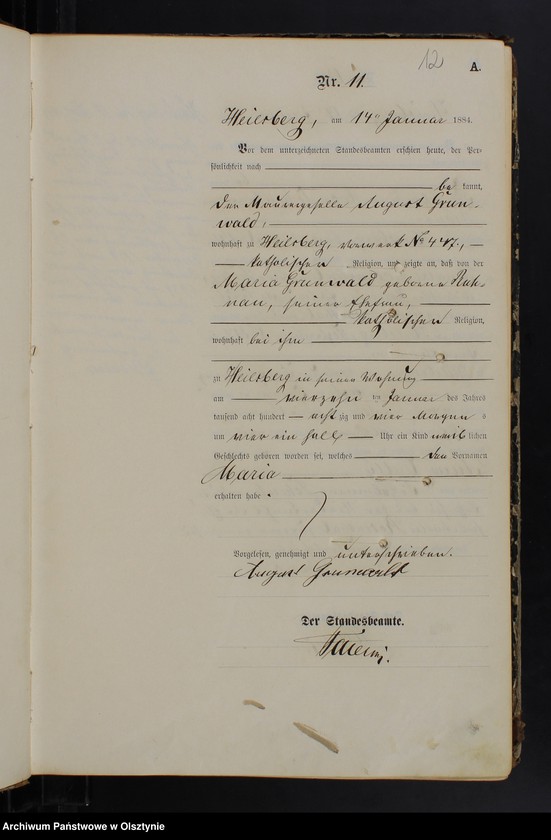 12
A.
Nr. 11.
Heilsberg, am 14ten Januar 1884.
Vor dem unterzeichneten Standesbeamten erschien heute, der Per-
sönlichkeit nach
be kannt,
der Maurergeselle August Grun-
wald,
wohnhaft zu Heilsberg, vorwerk No 447,
katholischen Religion, und zeigte an, daß von der
Maria Grunwald geborene
seiner Ehefrau,
katholischen Religion,
wohnhaft bei ihm
zu Heilsberg in seiner Wohnung
am vierzehn ten Januar des Jahres
tausend acht hundert acht zig und vier Morgens
um vier ein halb Uhr ein Kind weib lichen
Geschlechts geboren worden sei, welches den Vornamen
Maria
erhalten habe.
Vorgelesen, genehmigt und unterschrieben.
August Grunwald
Der Standesbeamte.
Archiwum Państwowe w Olsztynie